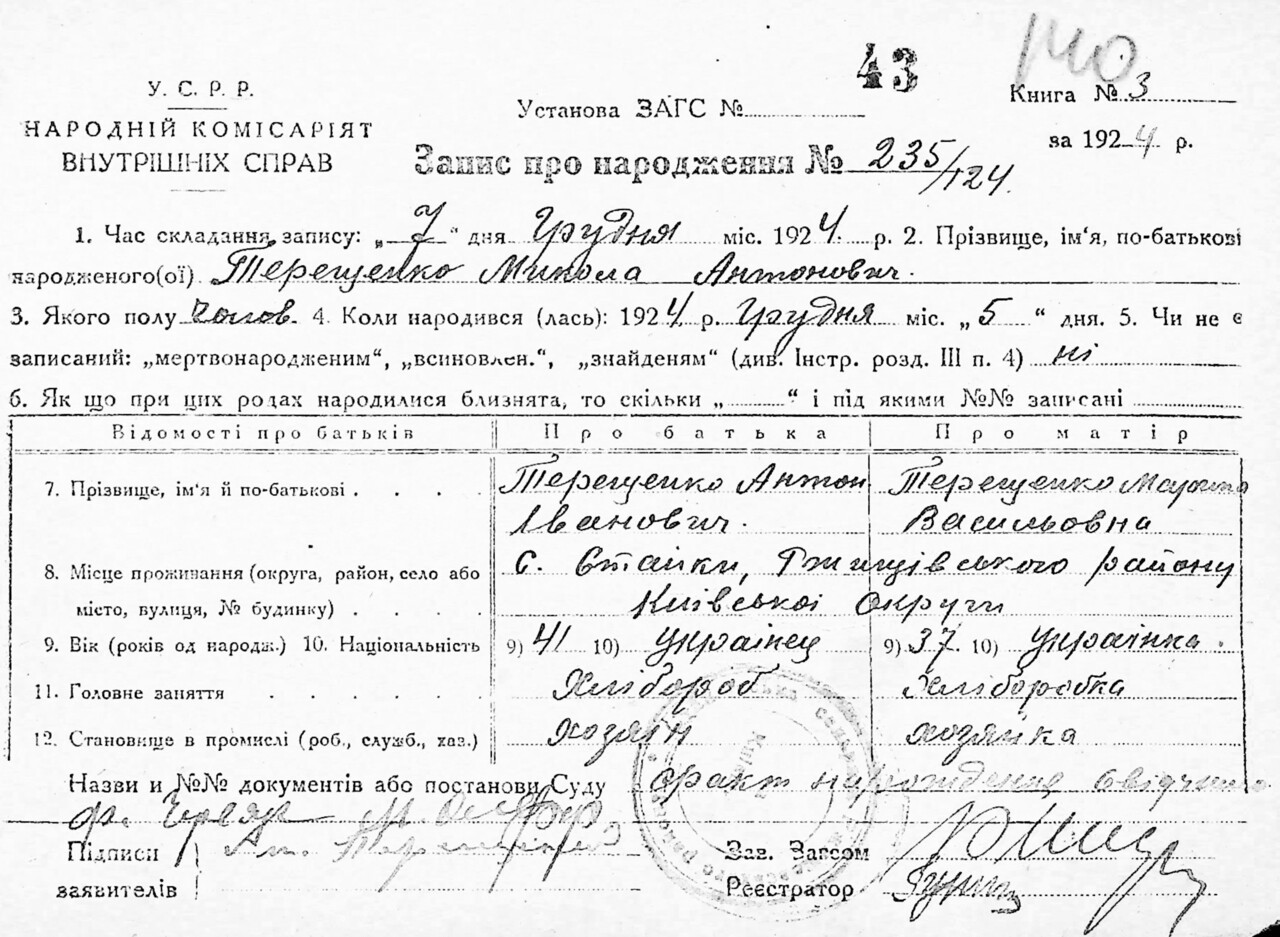 43
140
У. С. Р. Р.
Установа ЗАГС №
Книга № 3
НАРОДНІЙ КОМІСАРІЯТ
ВНУТРІШНІХ СПРАВ
за 1924 р.
Запис про народження № 235/124.
1. Час складання запису: „7“ дня Грудня міс. 1924 р. 2. Прізвище, ім'я, по-батькові
народженого(ої) Терещенко Микола Антонович.
3. Якого полу чолов. 4. Коли народився (лась): 1924 р. Грудня міс. „5“ дня. 5. Чи не є
записаний: „мертвонародженим“, „всиновлен.“, „знайденям“ (див. Інстр. розд. III п. 4) ні
6. Як що при цих родах народилися близнята, то скільки „ “ і під якими №№ записані
Відомості про батьків Про батька Про матір
7. Прізвище, ім'я й по-батькові . . . . Терещенко Антон Терещенко
Іванович. Васильовна
8. Місце проживання (округа, район, село або с. Стайки, Ржищівського району
місто, вулиця, № будинку) . . . . Київської Округи
9. Вік (років од народж.) 10. Національність 9) 41 10) Українец 9) 37. 10) Українка.
11. Головне заняття . . . . . Хлібороб Хліборобка
12. Становище в промислі (роб., служб., хаз.) хозяін хозяйка
Назви и №№ документів або постанови Суду факт нарождение
Підписи
заявителів
Зав. Загсом
Реєстратор